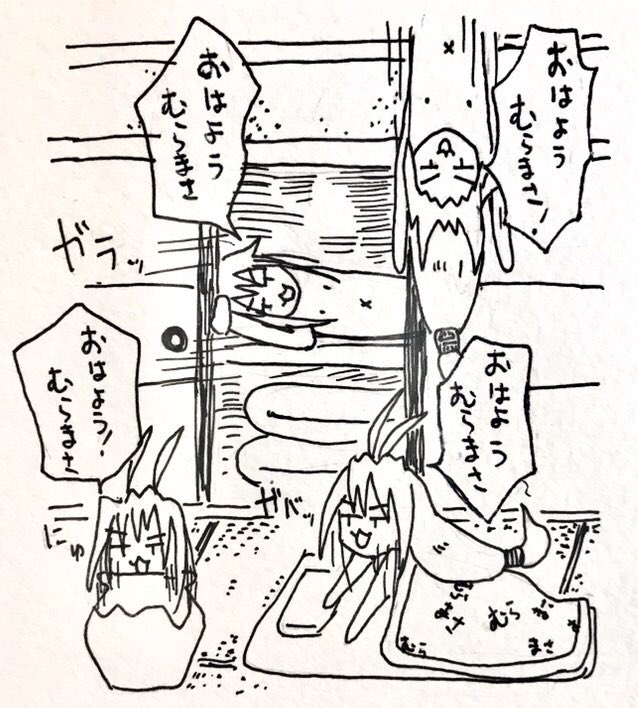 おはよう
むらまさ!
おはよう
むらまさ
ガラッ
おはよう
むらまさ
おはよう!
むらまさ
ガバッ
にゅ
むら
まさ
むら
まさ